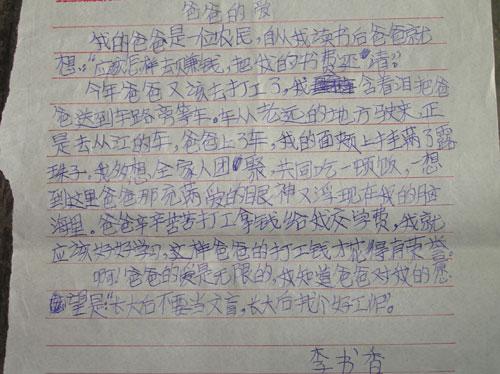 爸爸的爱
我的爸爸是一位农民,自从我读书后爸爸就
想:"应该怎样去赚钱,把我的书费还清"。
今年爸爸又该去打工了,我含着泪把爸
爸送到车路旁等车。车从老远的地方驶来,正
是去从江的车,爸爸上了车,我的面颊上挂满了露
珠子,我多想全家人团聚,共同吃一顿饭,一想
到这里爸爸那充满爱的眼神又浮现在我的脑
海里。爸爸辛辛苦苦打工拿钱给我交学费,我就
应该好好学习,这样爸爸的打工钱才花得有
啊!爸爸的爱是无限的,我知道爸爸对我的愿
望是:"长大后不要当文盲,长大后找个好工作"。
李书香